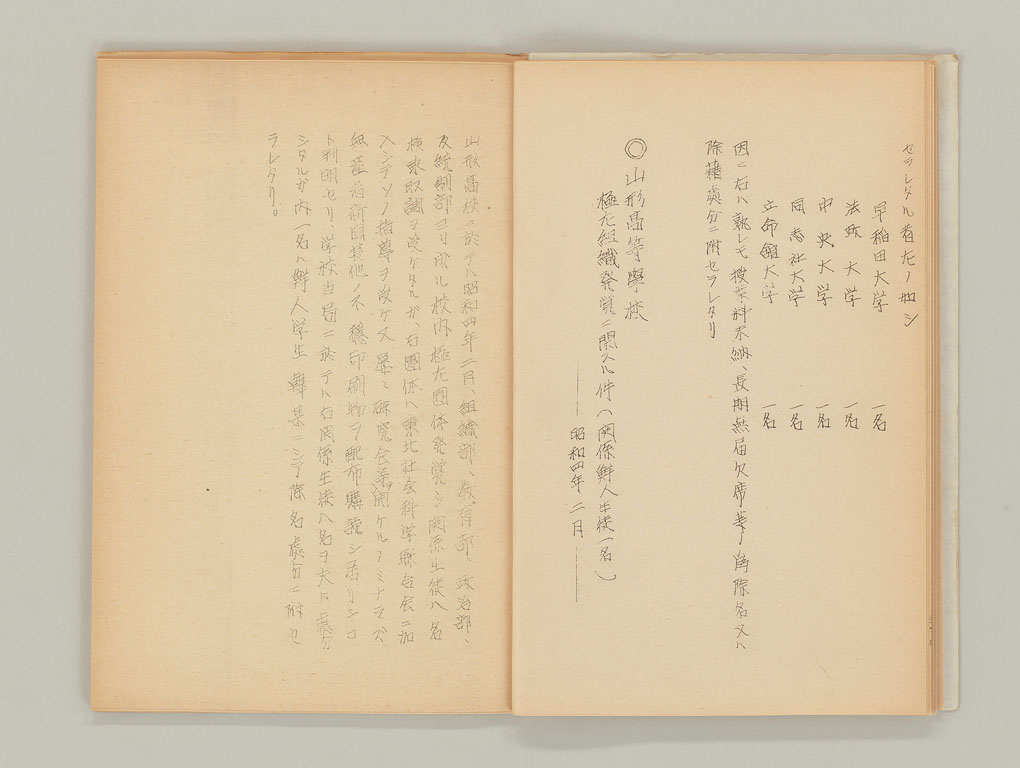 セラレタル者左ノ如シ
早稲田大学 一名
法政大学 一名
中央大学 一名
同志社大学 一名
立命館大学 一名
因ニ右ハ孰レモ授業料未納、長期無届欠席等ノ為除名又ハ
除籍處分ニ附セラレタリ
◎山形高等學校
極左組織発覚ニ関スル件(関係鮮人生徒一名)
昭和四年二月
山形高校ニ於テハ昭和四年二月、組織部、教育部、政治部、
及統制部ヨリ成ル校内極左團体発覚シ関係生徒八名
検束取調ヲ受ケタルガ、右團体ハ東北社会科学聯合会ニ加
入シテソノ指導ヲ受ケ又屡々研究会等開ケルノミナラズ
無産者新聞其他ノ不穏印刷物ヲ配布購読シ居リシコ
ト判明セリ、学校当局ニ於テハ右関係生徒八名ヲ夫々處分
シタルガ内一名ハ鮮人学生 某ニシテ除名處分ニ附セ
ラレタリ。